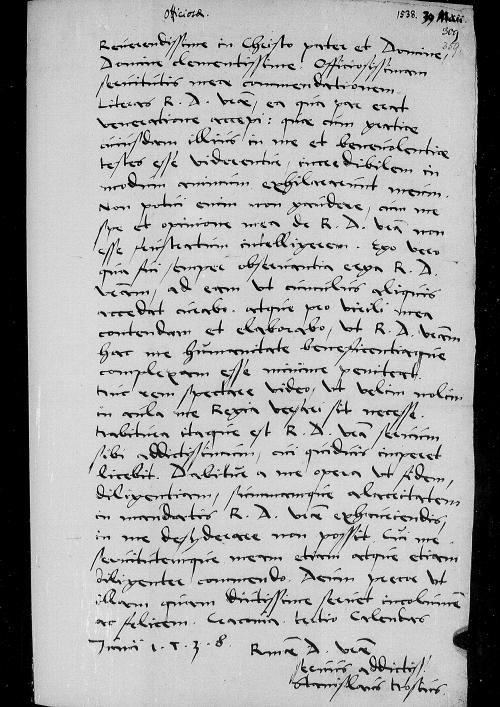 Officiosae.
1538. 30 Maii.
309
Reverendissime in Christo pater et Domine,
Domine clementissime. Officiosissimam
servitutis meae commendationem.
Literas R. D. Vrae, ea qua par erat
veneratione accepi: quae cum gratiae
cuiusdam illius in me et benevolentiae
testes esse viderentur, incredibilem in
modum animum exhilararunt meum.
Non potui enim non gaudere, cum me
spe et opinione mea de R. D. Vra non
esse frustratum intelligerem. Ego vero
qua fui semper observantia erga R. D.
Vram, ad eam ut cumulus aliquis
accedat curabo. atque pro virili mea
contendam et elaborabo, ut R. D. Vram
hac me humanitate beneficentiaque
complexam esse minime peniteat.
tunc rem spectare video, ut velim nolim
in aula me Regia versari sit necesse.
habitura itaque est R. D. Vra servum
sibi addictissimum, cui quidvis imperet
licebit. Dabitur a me opera ut fidem,
diligentiam, summamque alacritatem
in mandatis R. D. Vrae exhauriendis,
in me desyderare non possit. Cui me
servitutemque meam etiam atque etiam
diligenter commendo. Deum precor ut
illam quam diutissime servet incolumem
ac felicem. Cracovia. tertio Calendas
Junii 1.5.3.8. Rmae D. Vrae
servus addictiss
Stanislaus Hosius